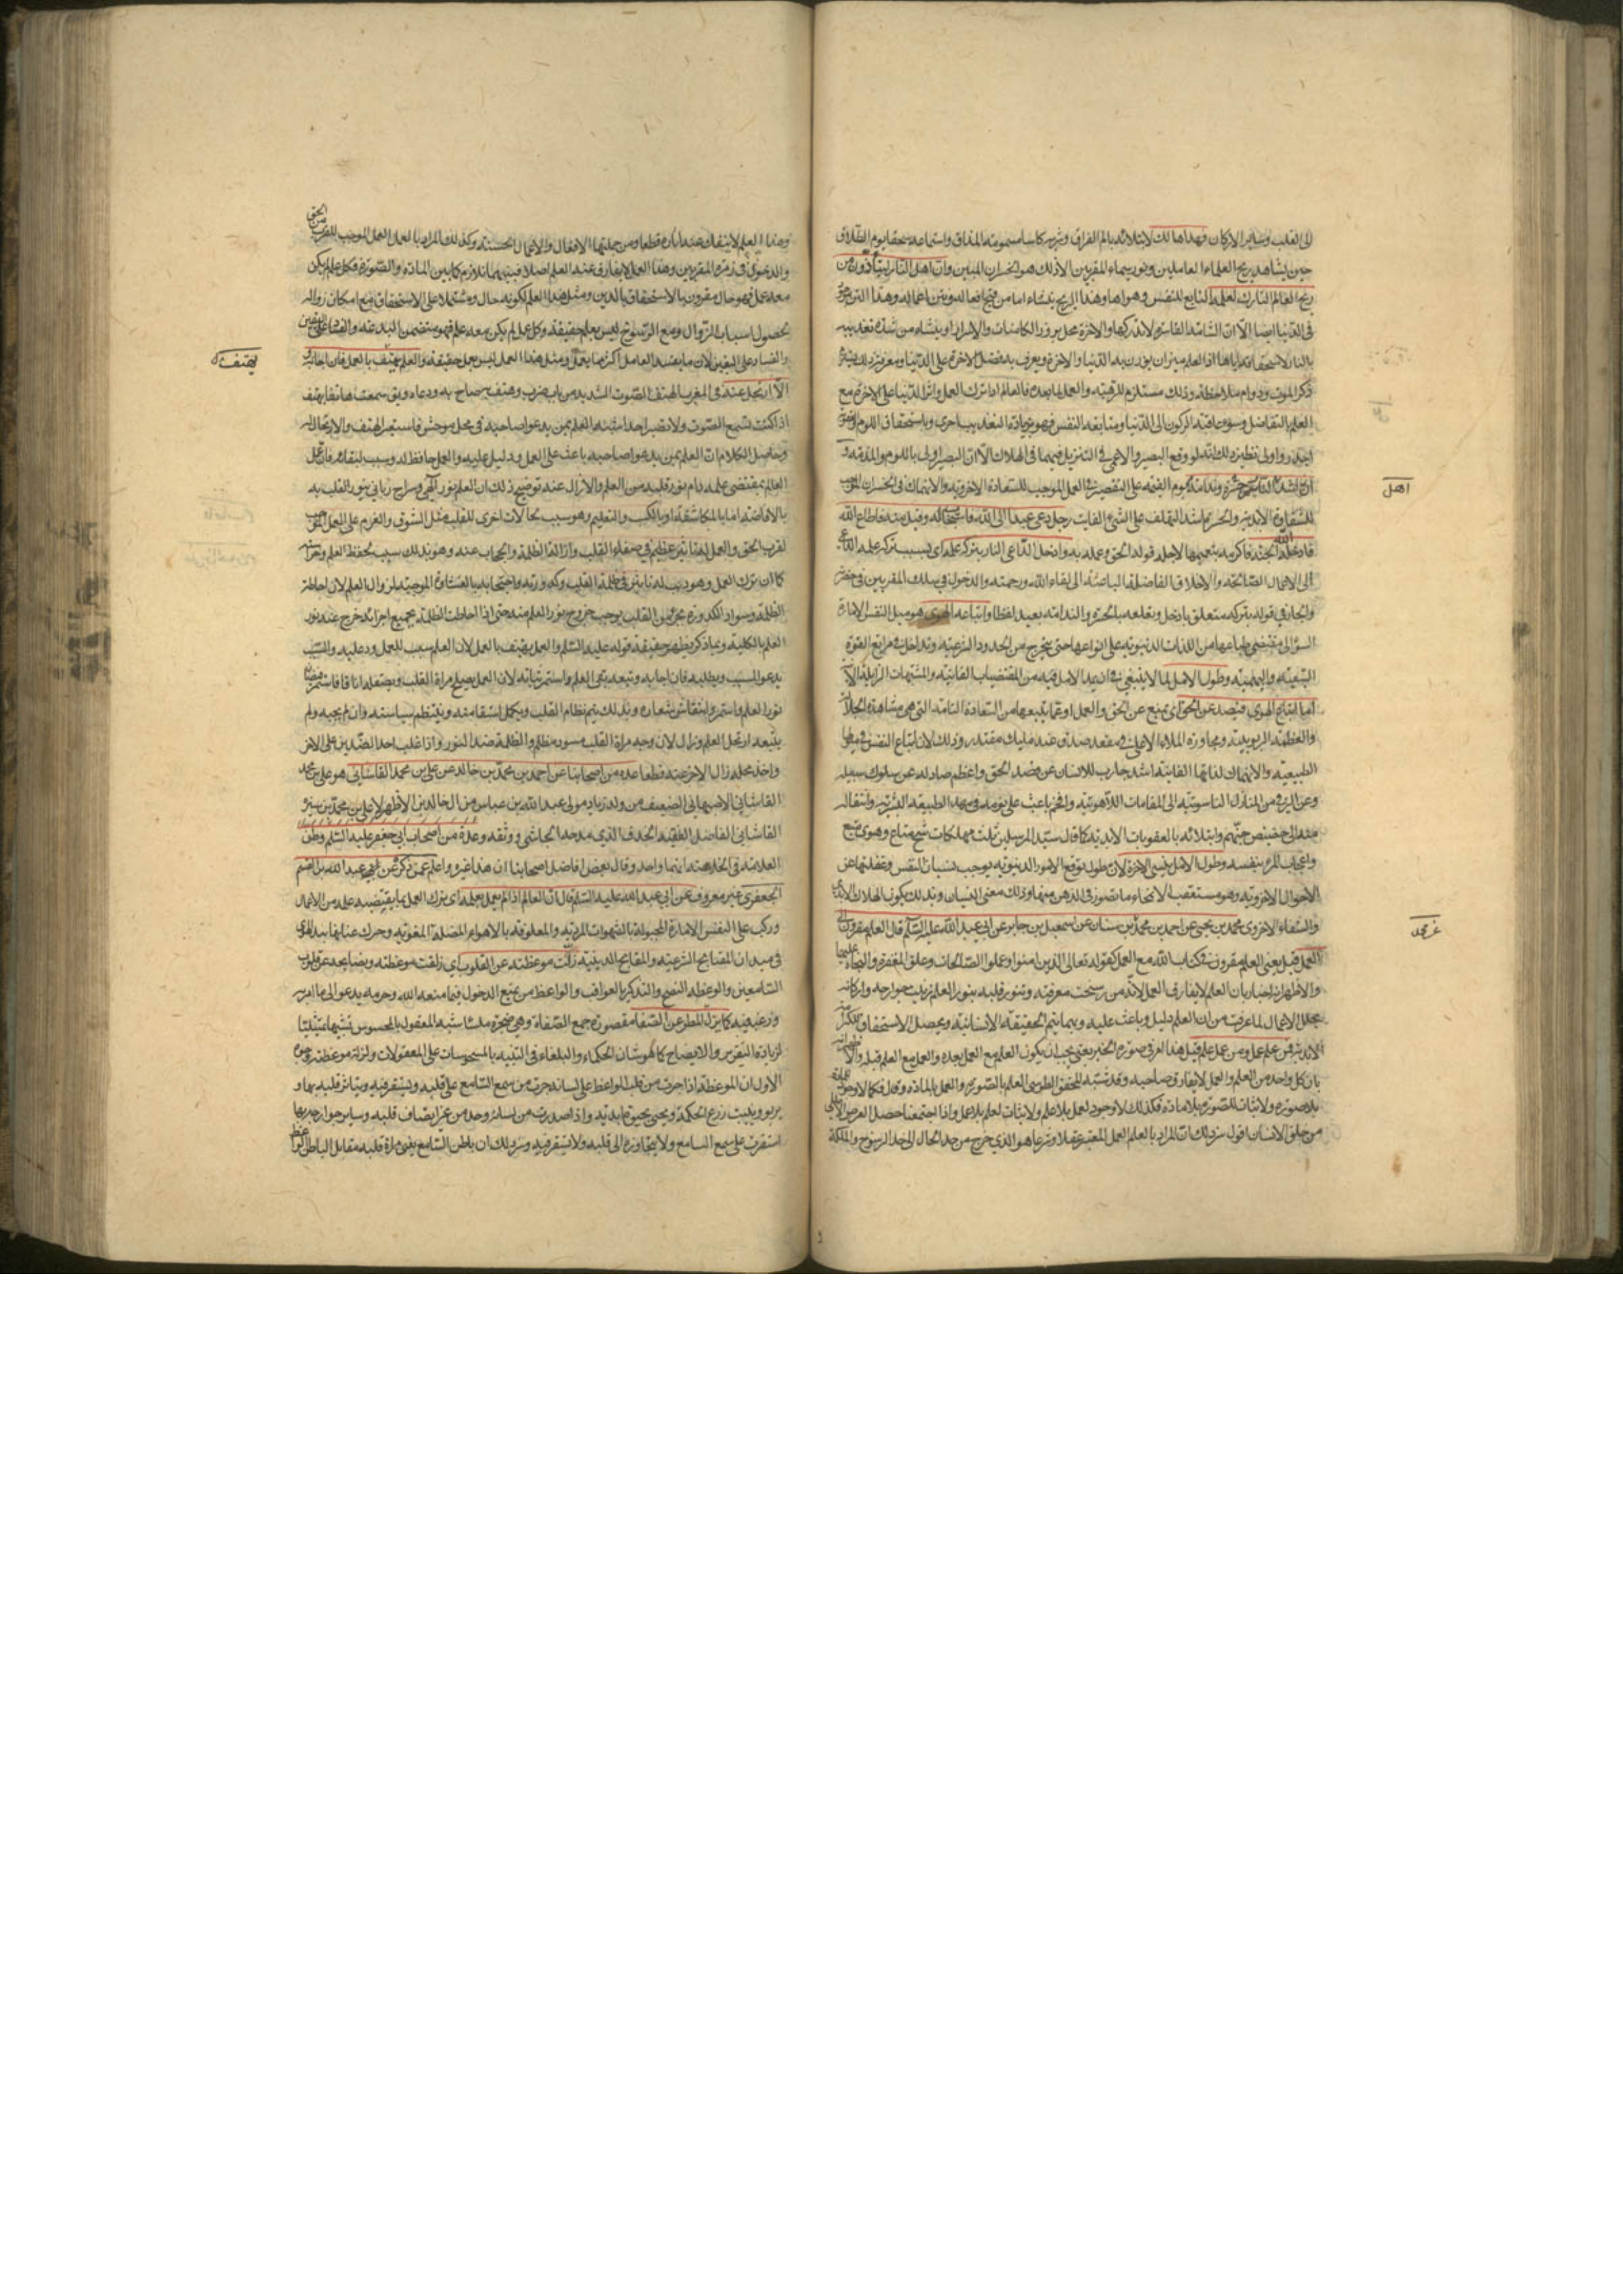 الى القلب وساير الاركان فهذا هالك لابتلائه بالم الفراق وشربه كاسا مسمومة المذاق واستماعه سحقا يوم الطلاق
حين يشاهد ريح العلماء العاملين ونور سيماء المقربين الا ذلك هو الخسران المبين وان اهل النار ليتأذون من
ريح العالم التارك لعلمه التابع للنفس وهواها وهذا الريح
في الدنيا ايضا الا ان الشامة القاصرة لا تدركها والاخرة محل بروز الكامنات والاسرار او ينشاء من شدة تعذيبه
بالنار لاستحقاقه اياها اذ العلم ميزان يوزن به الدنيا والاخرة ويعرف به فضل الاخرة على الدنيا
ذكر الموت ودوام ملاحظته وذلك مستلزم للرهبة والعمل لما بعده فالعالم اذا ترك العمل واثر الدنيا على الاخرة مع
العلم بالتفاضل وسوء عاقبة الركون الى الدنيا ومتابعة النفس فهو بزيادة التعذيب احرى وباستحقاق اللوم
اجدر واولى نظير ذلك انه لو وقع البصير والاعمى في التنزيل فهما في الهلاك الا ان البصير اولى باللوم والمذمة و
ان اشد الناس حسرة وندامة يوم القيمة على التقصير في العمل الموجب للسعادة الاخروية والانهماك في الخسران
للشقاوة الابدية والحسرة اشد التلهف على الشيء الفايت رجل دعى عبدا الى الله فاستجاب له وقبل منه فاطاع الله
فادخله الله الجنة فاكرمه بنعيمها لاجل قوله الحق وعمله به وادخل الداعي النار بتركه علمه اى بسبب تركه علمه
الى الاعمال الصالحة والاخلاق الفاضلة الباعثة الى لقاء الله ورحمته والدخول في سلك المقربين في حضرته
والجار في قوله بتركه متعلق بادخل وتعلقه بالحسرة والندامة بعيد لفظا واتباعه الهوى هو ميل النفس الامارة
السوء الى مقتضى طباعها من اللذات الدنيوية على انواعها حتى تخرج من الحدود الشرعية وتداخل في مراتع القوة
السبعية والبهيمية وطول الامل لما لا ينبغي ان يمد الامل فيه من المقتضيات الفانية والمشتهيات الزايلة
اما اتباع الهوى فيصد عن الحق اى يمنع عن الحق والعمل او عما يتبعها من السعادة التامة التي هي مشاهدة
والعظمة الربوبية ومجاورة الملاء الاعلى في مقعد صدق عند مليك مقتدر وذلك لان اتباع النفس في ميولها
الطبيعية والانهماك في لذاتها الفانية اشد جاذب للانسان عن قصد الحق واعظم صاد له عن سلوك سبيله
وعن الترقي من المنازل الناسوتية الى المقامات اللاهوتية وافخم باعث على نومه في مهد الطبيعة البشرية وانتقاله
منه الى حضيض جهنم وابتلائه بالعقوبات الابدية كما قال سيد المرسلين ثلث مهلكات شح مطاع وهوى متبع
واعجاب المرء بنفسه وطول الامل ينسي الاخرة لان طول توقع الامور الدنيوية يوجب نسيان النفس وغفلتها عن
الاحوال الاخروية وهو مستعقب لانمحاء ما تصور في الذهن منها وذلك معنى النسيان وبذلك يكون الهلاك الابدي
والشقاء الاخروي محمد بن يحيى عن احمد بن محمد عن محمد بن سنان عن اسمعيل بن جابر عن ابي عبد الله عليه السلام قال العلم مقرون الى
العمل قيل يعني العلم مقرون في كتاب الله مع العمل كقوله تعالى الذين امنوا وعملوا الصالحات وعلق المغفرة والنجاة عليهما
والاظهر انه اخبار بان العلم لا يفارق العمل لانه من رسخت معرفته وتنور قلبه بنور العلم تزينت جوارحه واركانه
بحلل الاعمال لما عرفت من ان العلم دليل وباعث عليه وبهما يتم الحقيقة الانسانية ويحصل الاستحقاق
الابدية فمن علم عمل ومن عمل علم قيل هذا امر في صورة الخبر يعني يجب ان يكون العلم مع العمل بعده والعمل مع العلم قبله
بان كل واحد من العلم والعمل لا يفارق صاحبه وقد شبه المحقق الطوسي العلم بالصورة والعمل بالمادة وقال فكما لا وجود
بلا صورة ولا ثبات للصورة بلا مادة فكذلك لا وجود لعمل بلا علم ولا ثبات لعلم بلا عمل واذا اجتمعا حصل الغرض
من خلق الانسان اقول سر ذلك ان المراد بالعلم العمل المعتبر عقلا وشرعا هو الذي خرج من حد الحال الى حد الرسوخ والملكة
اهل
عن محمد
وهذا العلم لا ينفك عنه اثاره قطعا ومن جملتها الافعال والاعمال الحسنة وكذلك المراد بالعمل العمل الموجب للقرب من الحق
والدخول في زمرة المقربين وهذا العمل لا يفارق عنه العلم اصلا فبينهما تلازم كما بين المادة والصورة فكل علم لم يكن
معه عمل فهو حال مقرون بالاستخفاف بالدين ومثل هذا العلم لكونه حال ومشتملا على الاستخفاف مع امكان زواله
بحصول اسباب الزوال ومع الرسوخ ليس بعلم حقيقة وكل عمل لم يكن معه علم فهو متضمن للبدعة
والفساد على اليقين لان ما يفسد العامل اكثر مما يصلح ومثل هذا العمل ليس بعمل حقيقة والعلم يهتف بالعمل فان اجابه
الا ارتحل عنه في المغرب الهتف الصوت الشديد من باب ضرب وهتف به صاح به ودعاه ويق سمعت هاتفا يهتف
اذا كنت تسمع الصوت ولا تبصر احدا شبه العلم بمن يدعو صاحبه في محل موحش فاستعير الهتف والارتحال له
وحاصل الكلام ان العلم بمن يدعو صاحبه باعث على العمل ودليل عليه والعمل حافظ له وسبب لبقائه فان عمل
العالم بمقتضى علمه دام نور قلبه من العلم والا زال عنه توضيح ذلك ان العلم نور الهي وسراج رباني ينور القلب به
بالافاضة اما بالمكاشفة او بالكسب والتعليم وهو سبب لحالات اخرى للقلب مثل الشوق والعزم على العمل
لقرب الحق والعمل له تاثير عظيم في صفاء القلب وازالة الظلمة والحجاب عنه وهو بذلك سبب لحفظ العلم
كما ان ترك العمل وهو ذنب له تاثير في ظلمة القلب وكدورته واحتجابه بالغشاوة الموجبة لزوال العلم لان احاطة
الظلمة وسواد الكدورة بجزء من القلب يوجب خروج نور العلم منه حتى اذا احاطت الظلمة بجميع اجزائه خرج عنه نور
العلم بالكلية وبما ذكر يظهر حقيقة قوله عليه السلام والعلم يهتف بالعمل لان العلم سبب للعمل وداع اليه والسبب
يدعو المسبب ويطلبه فان اجابه وتبعه بقى العلم واستمر ثباته لان العمل يصلح مراة القلب ويصقله انا فانا
نور العلم واستمر وانتقاش شعاره وبذلك يتم نظام القلب ويكمل استقامته وينتظم سياسته وان لم يجبه ولم
يتبعه ارتحل العلم وزال لان وجه مراة القلب مسود مظلم والظلمة ضد النور واذا غلب احد الضدين على الاخر
واخذ محله زال الاخر عنه قطعا عدة من اصحابنا عن احمد بن محمد بن خالد عن علي بن محمد القاشاني هو علي بن محمد
القاشاني الاصبهاني الضعيف من ولد زياد مولى عبد الله بن عباس من ال خالد بن الازهر لا علي بن محمد بن شيرة
القاشاني الفاضل الفقيه المحدث الذي مدحه النجاشي ووثقه وعده من اصحاب ابي جعفر عليه السلم وظن
العلامة في الخلاصة انهما واحد وقال بعض افاضل اصحابنا ان هذا غيره واعلم عمن ذكره عن عبد الله بن القسم
الجعفري غير معروف عن ابي عبد الله عليه السلم قال ان العالم اذا لم يعمل بعلمه اى بترك العمل بما يقتضيه علمه من الاعمال
وركب على النفس الامارة المجبولة بالشهوات المردية والمعلوفة بالاهواء المضلة المغوية وحرك عنانها بيد الهوى
في ميدان المقابح الشرعية والمقابح الدينية زلت موعظته عن القلوب اى زلقت موعظته ونصايحه عن قلوب
السامعين والوعظ النصح والتذكير بالعواقب والواعظ من يمنع الدخول فيما منعه الله وحرمه يدعو الى ما امر به
ورغب فيه كما يزل المطر عن الصفا مقصورة جمع الصفاة وهي صخرة ملساء شبه المعقول بالمحسوس تشبيها تمثيليا
لزيادة التقرير والايضاح كما هو شان الحكماء والبلغاء في التنبيه بالمحسوسات على المعقولات ولزلة موعظته وجوه
الاول ان الموعظة اذا جرت من قلب الواعظ على لسانه جرت من سمع السامع على قلبه ويستقر فيه ويتاثر قلبه بها و
يربو وينبت زرع الحكمة ويحيى بحيوة ابدية واذا صدرت من لسانه وحده من غير اتصاف قلبه وساير جوارحه بها
استقرت على سمع السامع ولا يتجاوزه الى قلبه ولا يستقر فيه وسر ذلك ان باطن السامع يعني مراة قلبه مقابل لباطن الواعظ
يهتف